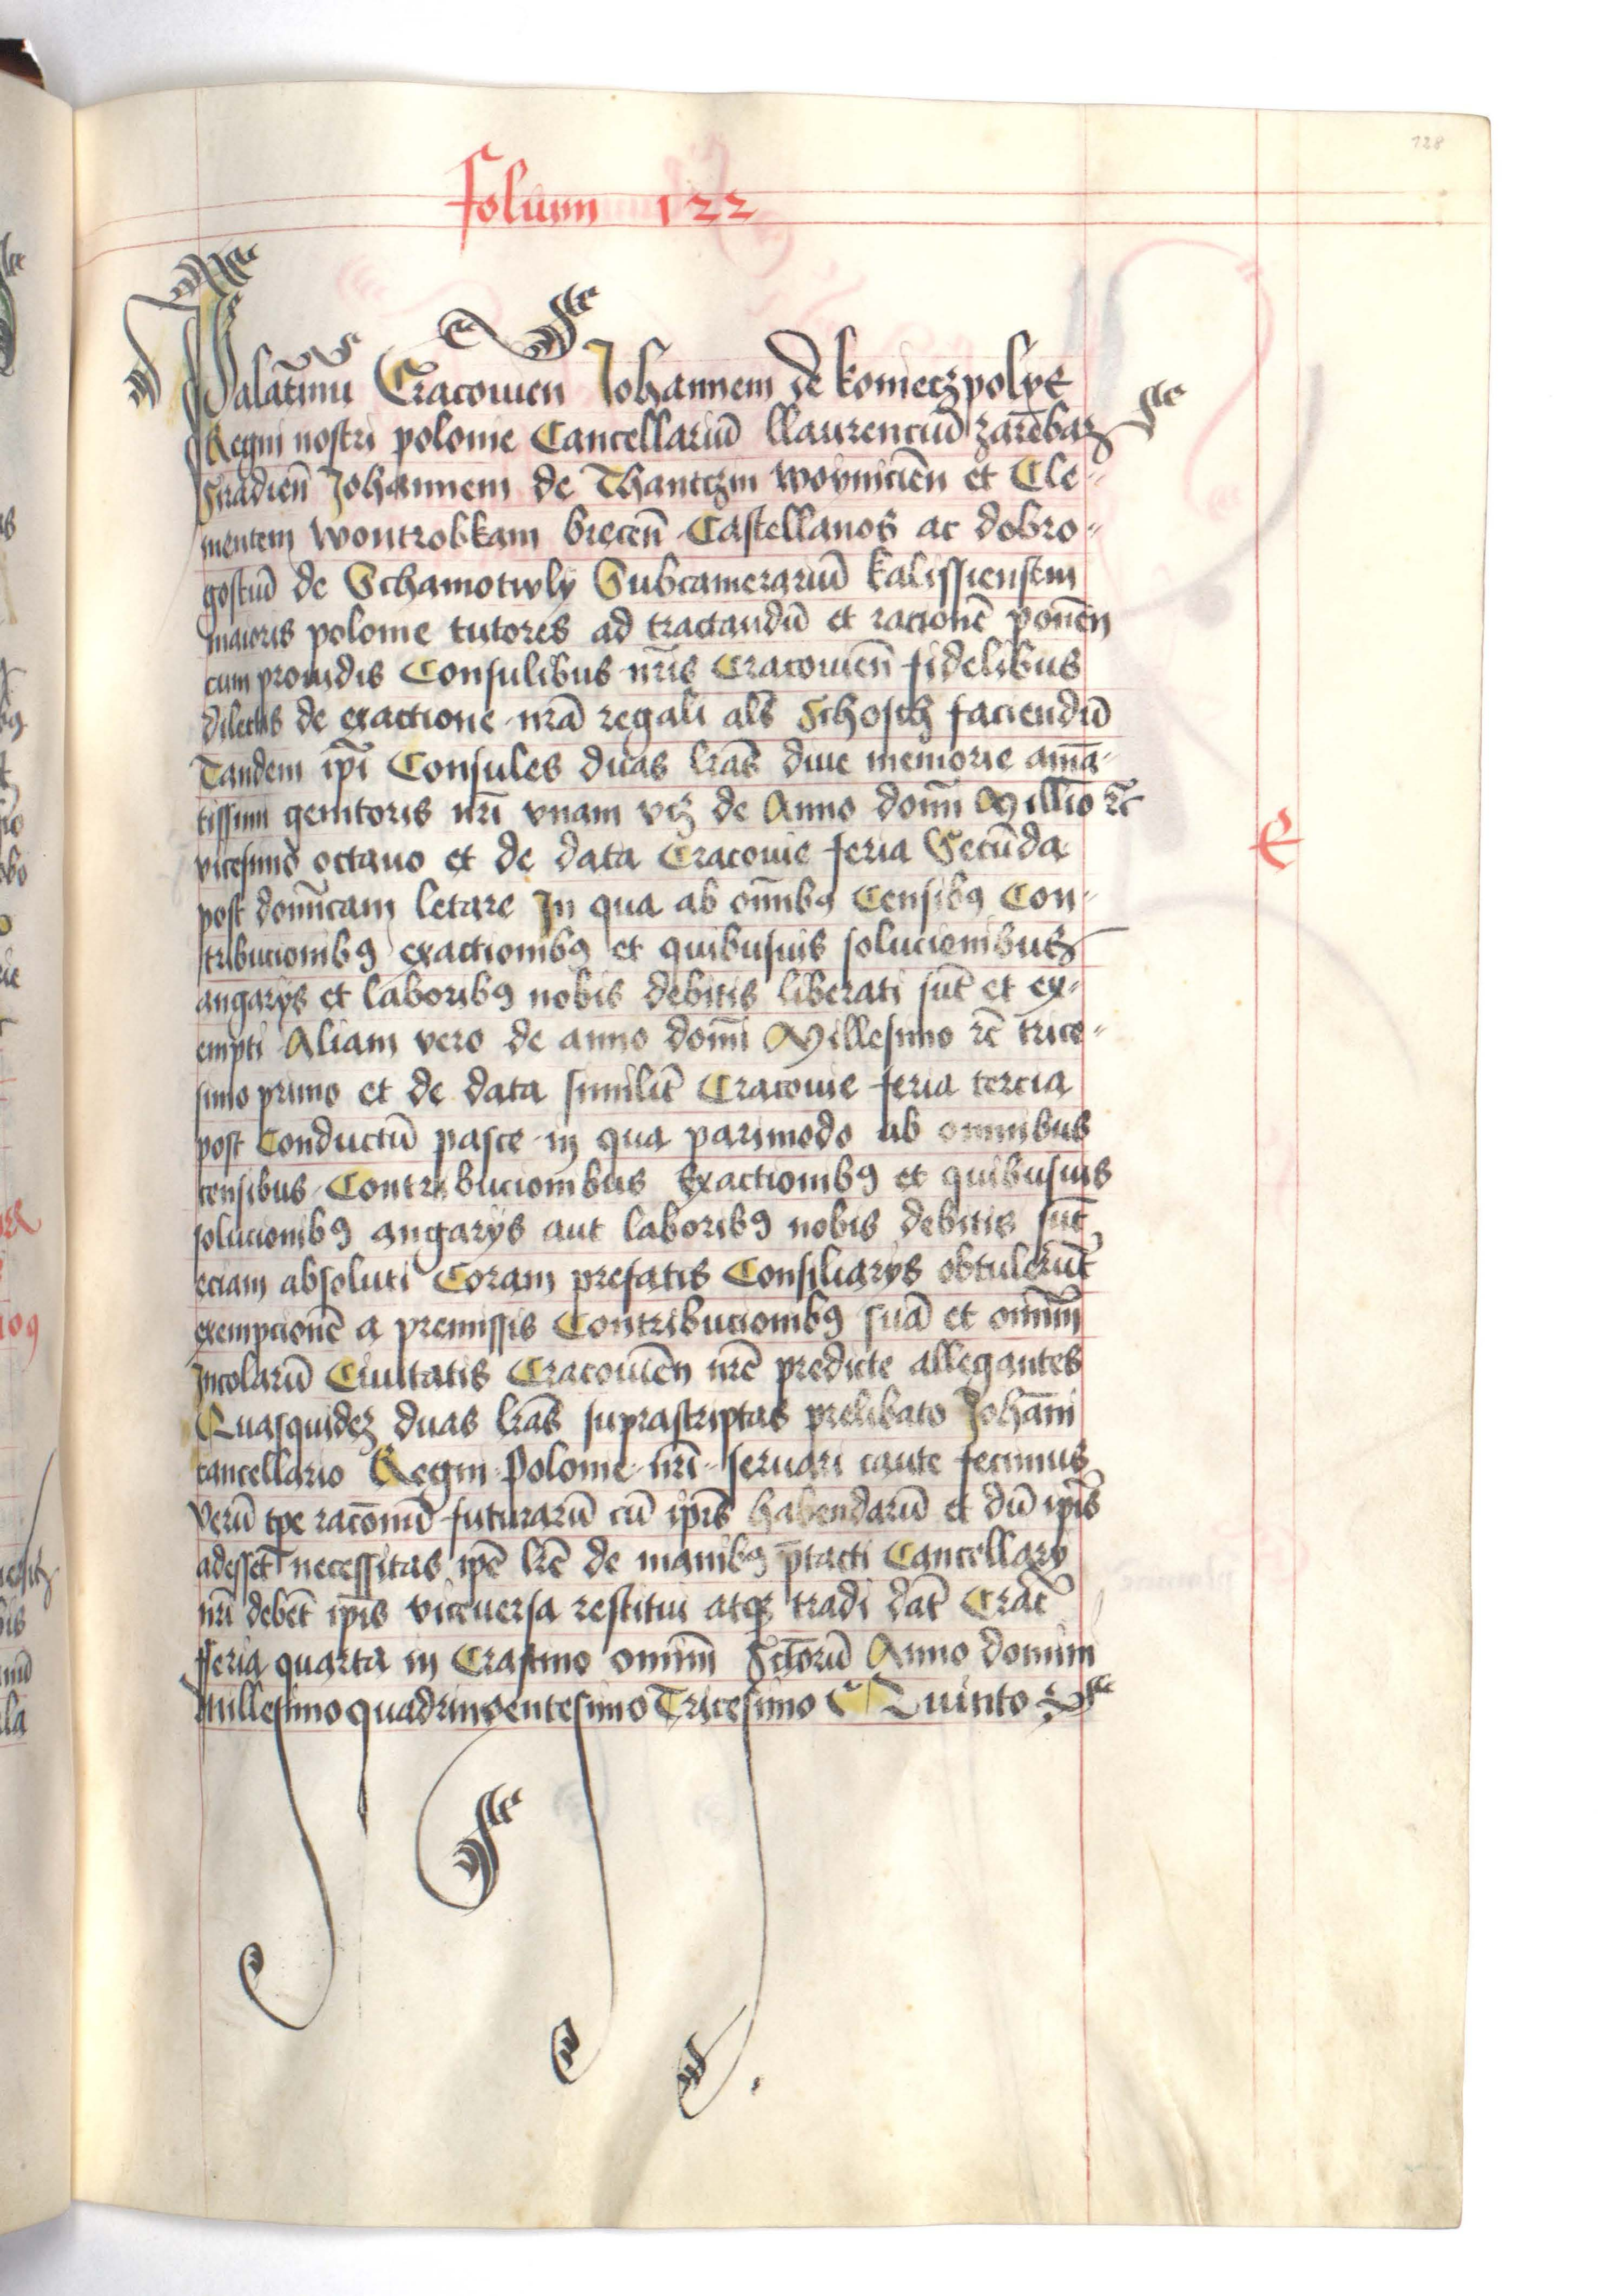 128
folium 122
Palatinū Cracouien Johannem de konieczpolye
Regni nostri polonie Cancellariū llaurenciū zarēbaz
Sīradień Johannem de Thantczin woyniciēn et Cle-
mentem wontrobkam brecen̄ Castellanos ac dobro-
gostiū de Schamotuly Subcamerariū kalissiensem
maioris polonie tutores ad tractandū et racionē ponēn
cum prouidis Consulibus nr̄is Cracouien̄ fidelibus
dilectis de exactione nrā regali als̄ Schosch faciendū
Tandem ip̄i Consules duas lrās diue memorie amā-
tissimi genitoris nrī vnam vcz de Anno domī Millīo rc̄
vicesimo octauo et de data Cracouie feria Secūda
post domīcam letare In qua ab om̄ibꝯ Censibꝯ Con-
tribucionibꝯ exactionibꝯ et quibusuis solucionibus
angarijs et laboribꝯ nobis debitis liberati sūt et ex-
empti Aliam vero de anno domī Millesimo rc̄ trice-
simo primo et de data similit̄ Cracouie feria tercia
post Conductū pasce in qua parimodo ab omnibus
censibus Contribucionibus Exactionibꝯ et quibusuis
solucionibꝯ angarijs aut laboribꝯ nobis debitis sūt
eciam absoluti Coram prefatis Consiliarijs obtulerūt
exempcionē a premissis Contribucionibꝯ suā et omnīm
Incolarū Ciuitatis Cracouiēn nrē predicte allegantes
Quasquidez duas lrās suprascriptas prelibato Johāni
cancellario Regni Polonie nrī seruari caute fecimus
Verū tp̄e racōnū futurarū cū ip̄is habendarū et dū ip̄is
adesset necessitas ip̄e lrē de manibꝯ p̄tacti Cancellarij
nrī debēt ip̄is viceuersa restitui atqꝫ tradi dat̄ Crac̄
fferia quarta in Crastino omnīm Sctōrū Anno domini
Millesimo quadringentesimo Tricesimo Quinto
E